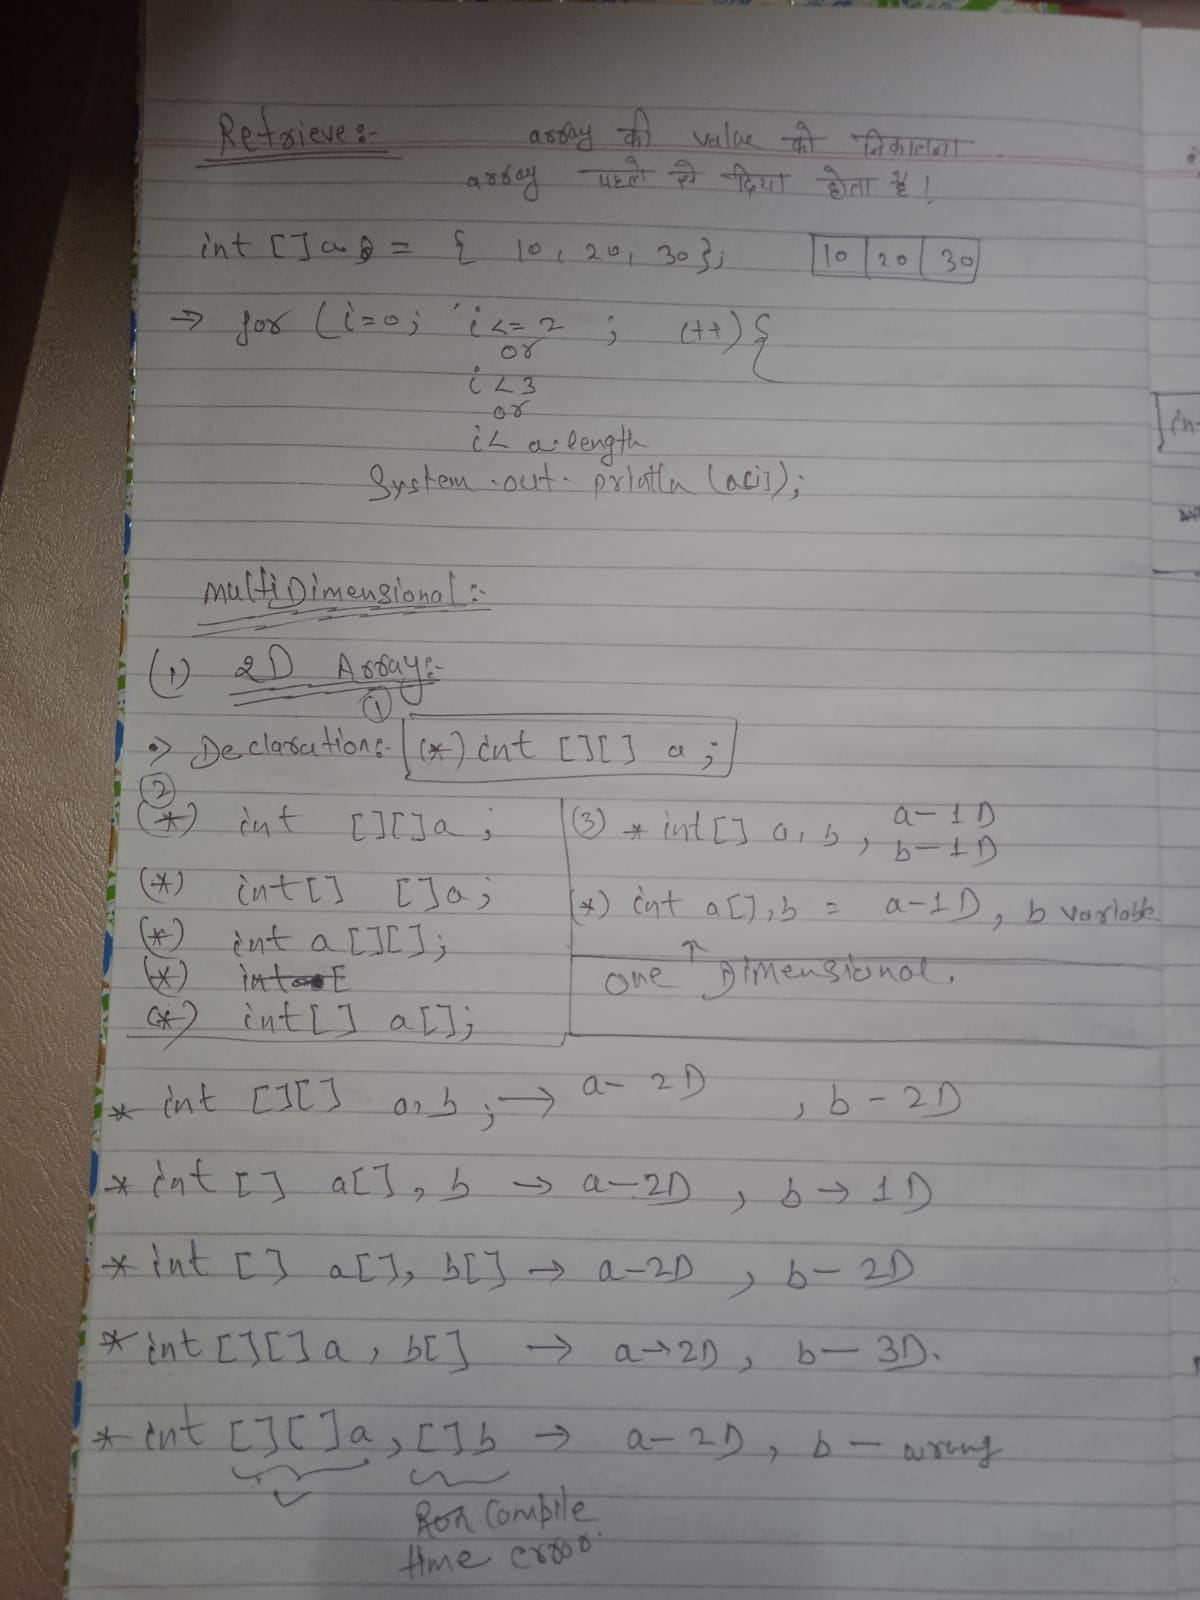 Retrieve:- array की value को निकालना
array पहले से दिया होता है।
int [] a = { 10, 20, 30}; 10 20 30
→ for (i=0; i<=2 ; i++) {
or
i<3
or
i< a.length
System.out.println(a[i]);
MultiDimensional:-
(1) 2D Array:-
①
•> Declaration:- (*) int [][] a;
②
(*) int [][]a;
(*) int[] []a;
(*) int a[][];
(*) int
(*) int[] a[];
(3) * int[] a, b, a-1D
b-1D
(*) int a[],b = a-1D, b variable
↑
One Dimensional.
* int [][] a,b; → a- 2D , b-2D
* int [] a[], b → a-2D , b→ 1D
* int [] a[], b[] → a-2D , b-2D
* int [][]a, b[] → a→2D, b-3D.
* int [][]a, []b → a-2D, b- wrong
Compile
time error